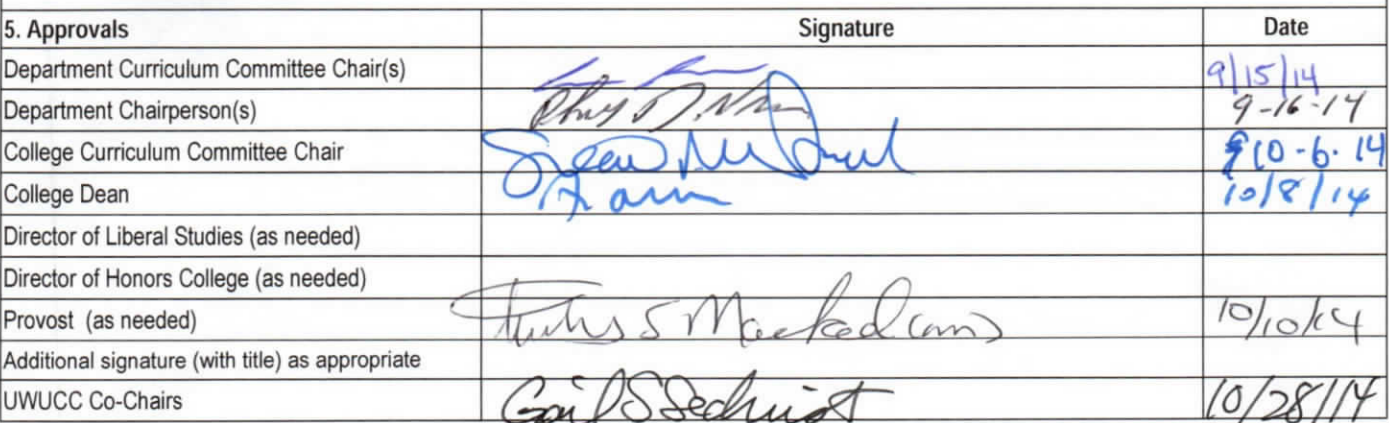 5. Approvals Signature Date
Department Curriculum Committee Chair(s) 9/15/14
Department Chairperson(s) 9-16-14
College Curriculum Committee Chair 10-6-14
College Dean 10/8/14
Director of Liberal Studies (as needed)
Director of Honors College (as needed)
Provost (as needed) 10/10/14
Additional signature (with title) as appropriate
UWUCC Co-Chairs Gail S Sechrist 10/28/14